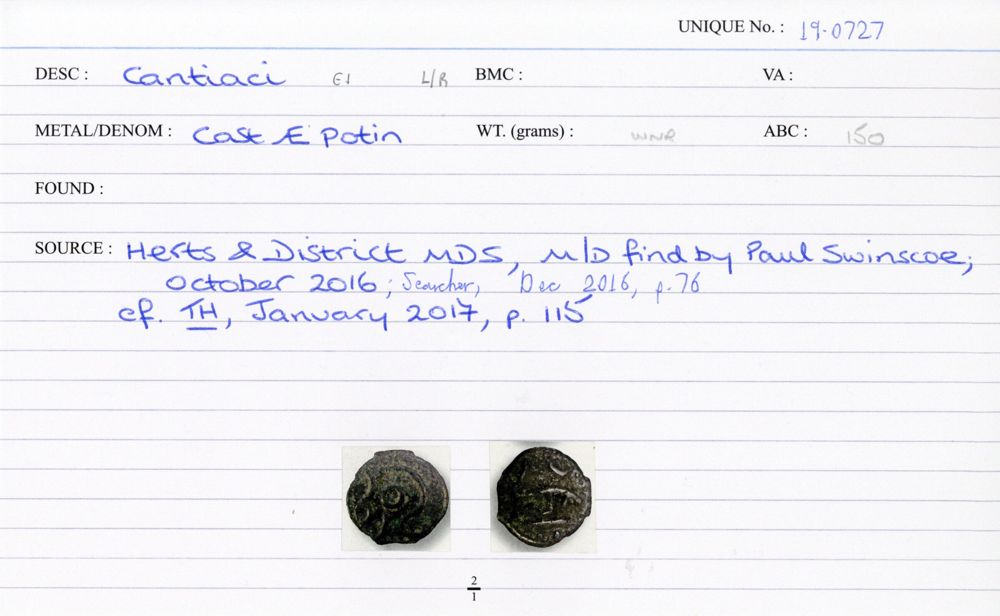 UNIQUE No. : 19.0727
DESC : Cantiaci E1 L/R BMC : VA :
METAL/DENOM : Cast Æ Potin WT. (grams) : WNR ABC : 150
FOUND :
SOURCE : Herts & District MDS, M/D find by Paul Swinscoe;
October 2016; Searcher, Dec 2016, p.76
cf. TH, January 2017, p. 115
2
1